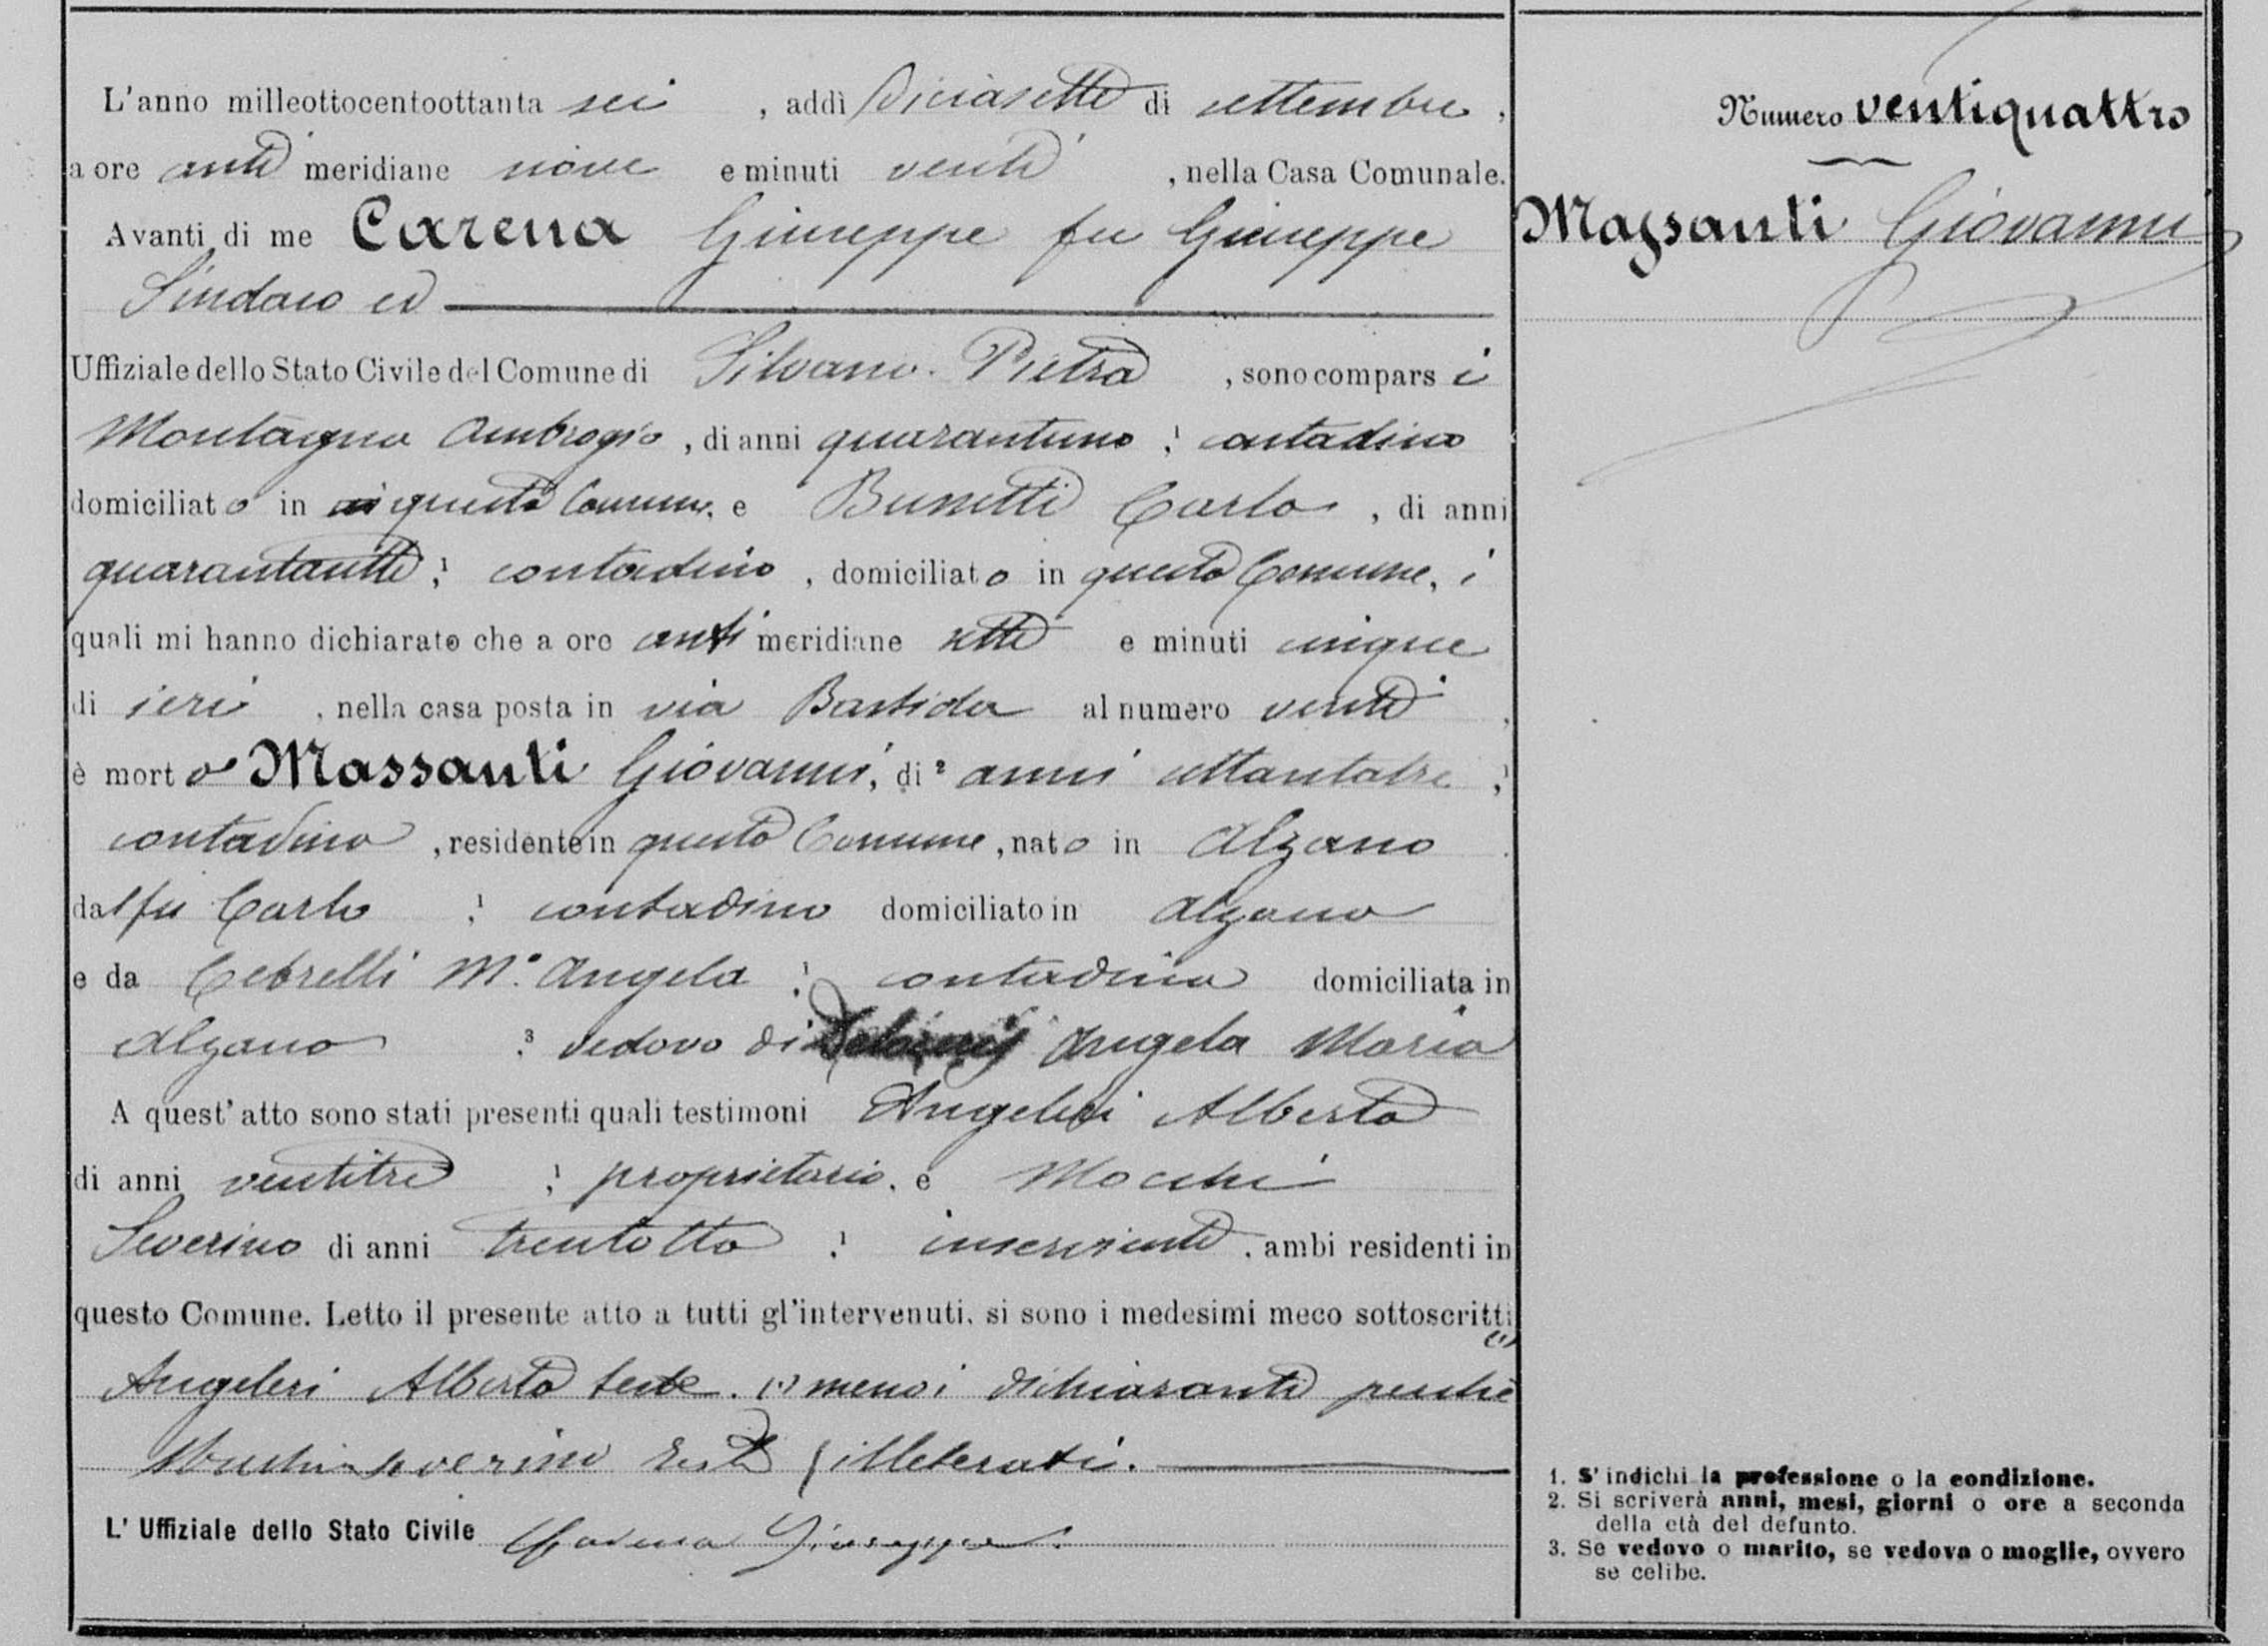 L'anno milleottocentoottanta sei , addì diciasette di settembre ,
a ore anti meridiane nove e minuti venti , nella Casa Comunale.
Avanti di me Carena Giuseppe fu Giuseppe
Sindaco ed
Uffiziale dello Stato Civile del Comune di Silvano Pietra , sono compars i
Montagna Ambrogio , di anni quarantuno ; contadino
domiciliato in questo Comune, e Bunetti Carlo , di anni
; contadino , domiciliato in questo Comune, i
quali mi hanno dichiarato che a ore anti meridiane sette e minuti cinque
di ieri , nella casa posta in via Bastida al numero venti ,
è morto Massanti Giovanni, di ² anni settantatre ;
contadino , residente in questo Comune , nato in Alzano
dal fu Carlo ; contadino domiciliato in Alzano
e da Cebrelli Mª Angela ; contadina domiciliata in
Alzano ³ vedovo di Angela Maria
A quest'atto sono stati presenti quali testimoni Angeleri Alberto
di anni ventitre ; proprietario, e Mocchi
Severino di anni trentotto ; inserviente , ambi residenti in
questo Comune. Letto il presente atto a tutti gl'intervenuti, si sono i medesimi meco sottoscritti (1)
Angeleri Alberto teste. (1) meno i dichiaranti perchè
Mochi Severino teste illeterati.
L'Uffiziale dello Stato Civile Carena Giuseppe.
Numero ventiquattro
Massanti Giovanni
1. S'indichi la professione o la condizione.
2. Si scriverà anni, mesi, giorni o ore a seconda
della età del defunto.
3. Se vedovo o marito, se vedova o moglie, ovvero
se celibe.